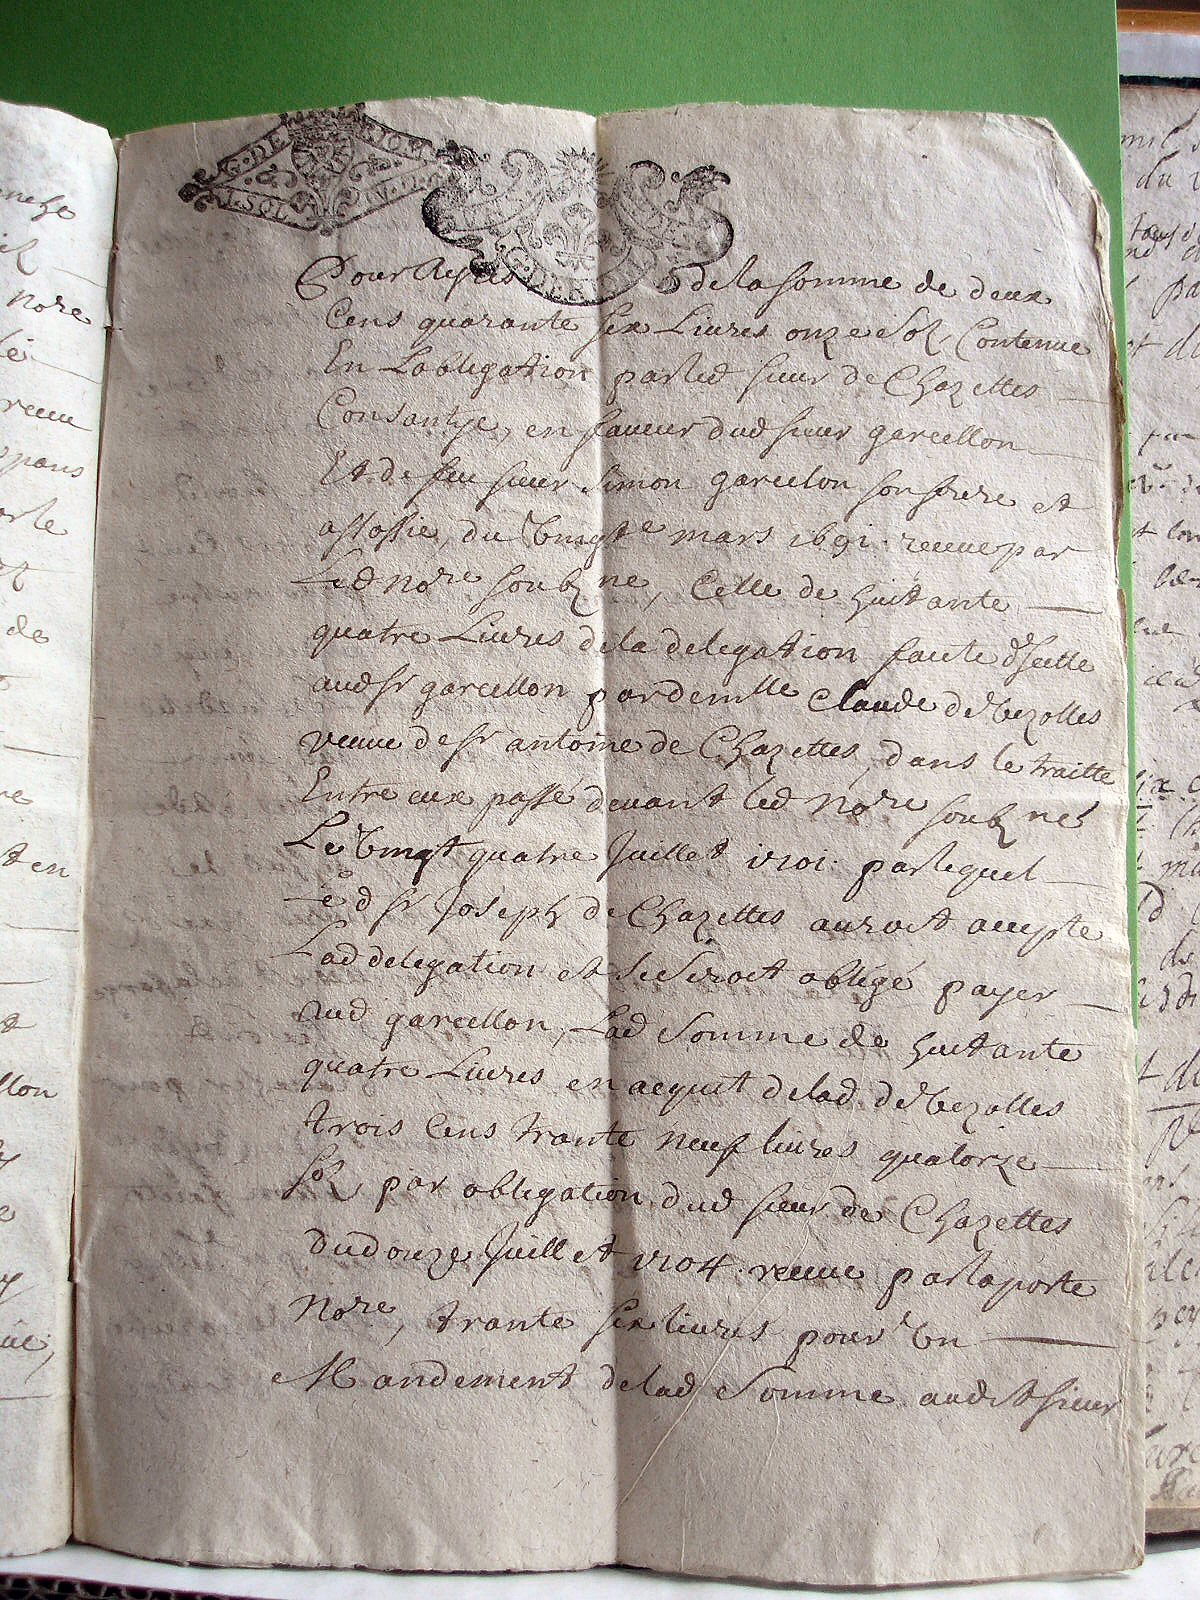 G. DE RIOM
I. SOL
G. DE RIOM
Pour Ayses de la somme de deux
Cens quarante six Liures onze solz Contenue
En Lobligation par led sieur de Chazettes
Consantye, en faueur dud sieur garcellon
Et de feu sieur Simon garcelon son frere et
assossie, du Vingte mars 1691. receue par
Led nore soubzne, Celle de huitante
quatre Liures de la delegation faite d'icelle
aud sr garcellon par demlle Claude de Vezolles
veuue de sr antoine de Chazettes, dans le traitte
Entre eux passé deuant led nore soubzné
Le Vingt quatre Juillet 1701. par lequel
Led sr Joseph de Chazettes auroit acepte
Lad delegation et se seroit obligé payer
Aud garcellon, Lad somme de huitante
quatre Liures en acquit de lad de Vezolles
trois Cens trante neuf liures quatorze
solz par obligation dud sieur de Chazettes
du douze Juillet 1704. receue par laporte
Nore, trante six liures pour Vn
Mandement de lad somme audit sieur
nore
receue
en
de
llon